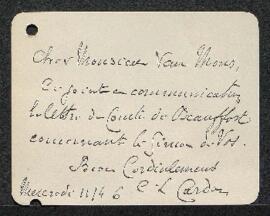 Cher Monsieur Van Mons,
Ci joint en communication
la lettre du Comte de Beauffort
concernant le Simon de Vos.
Bien Cordialement
Mercredi 11/4 6 C. L. Cardon